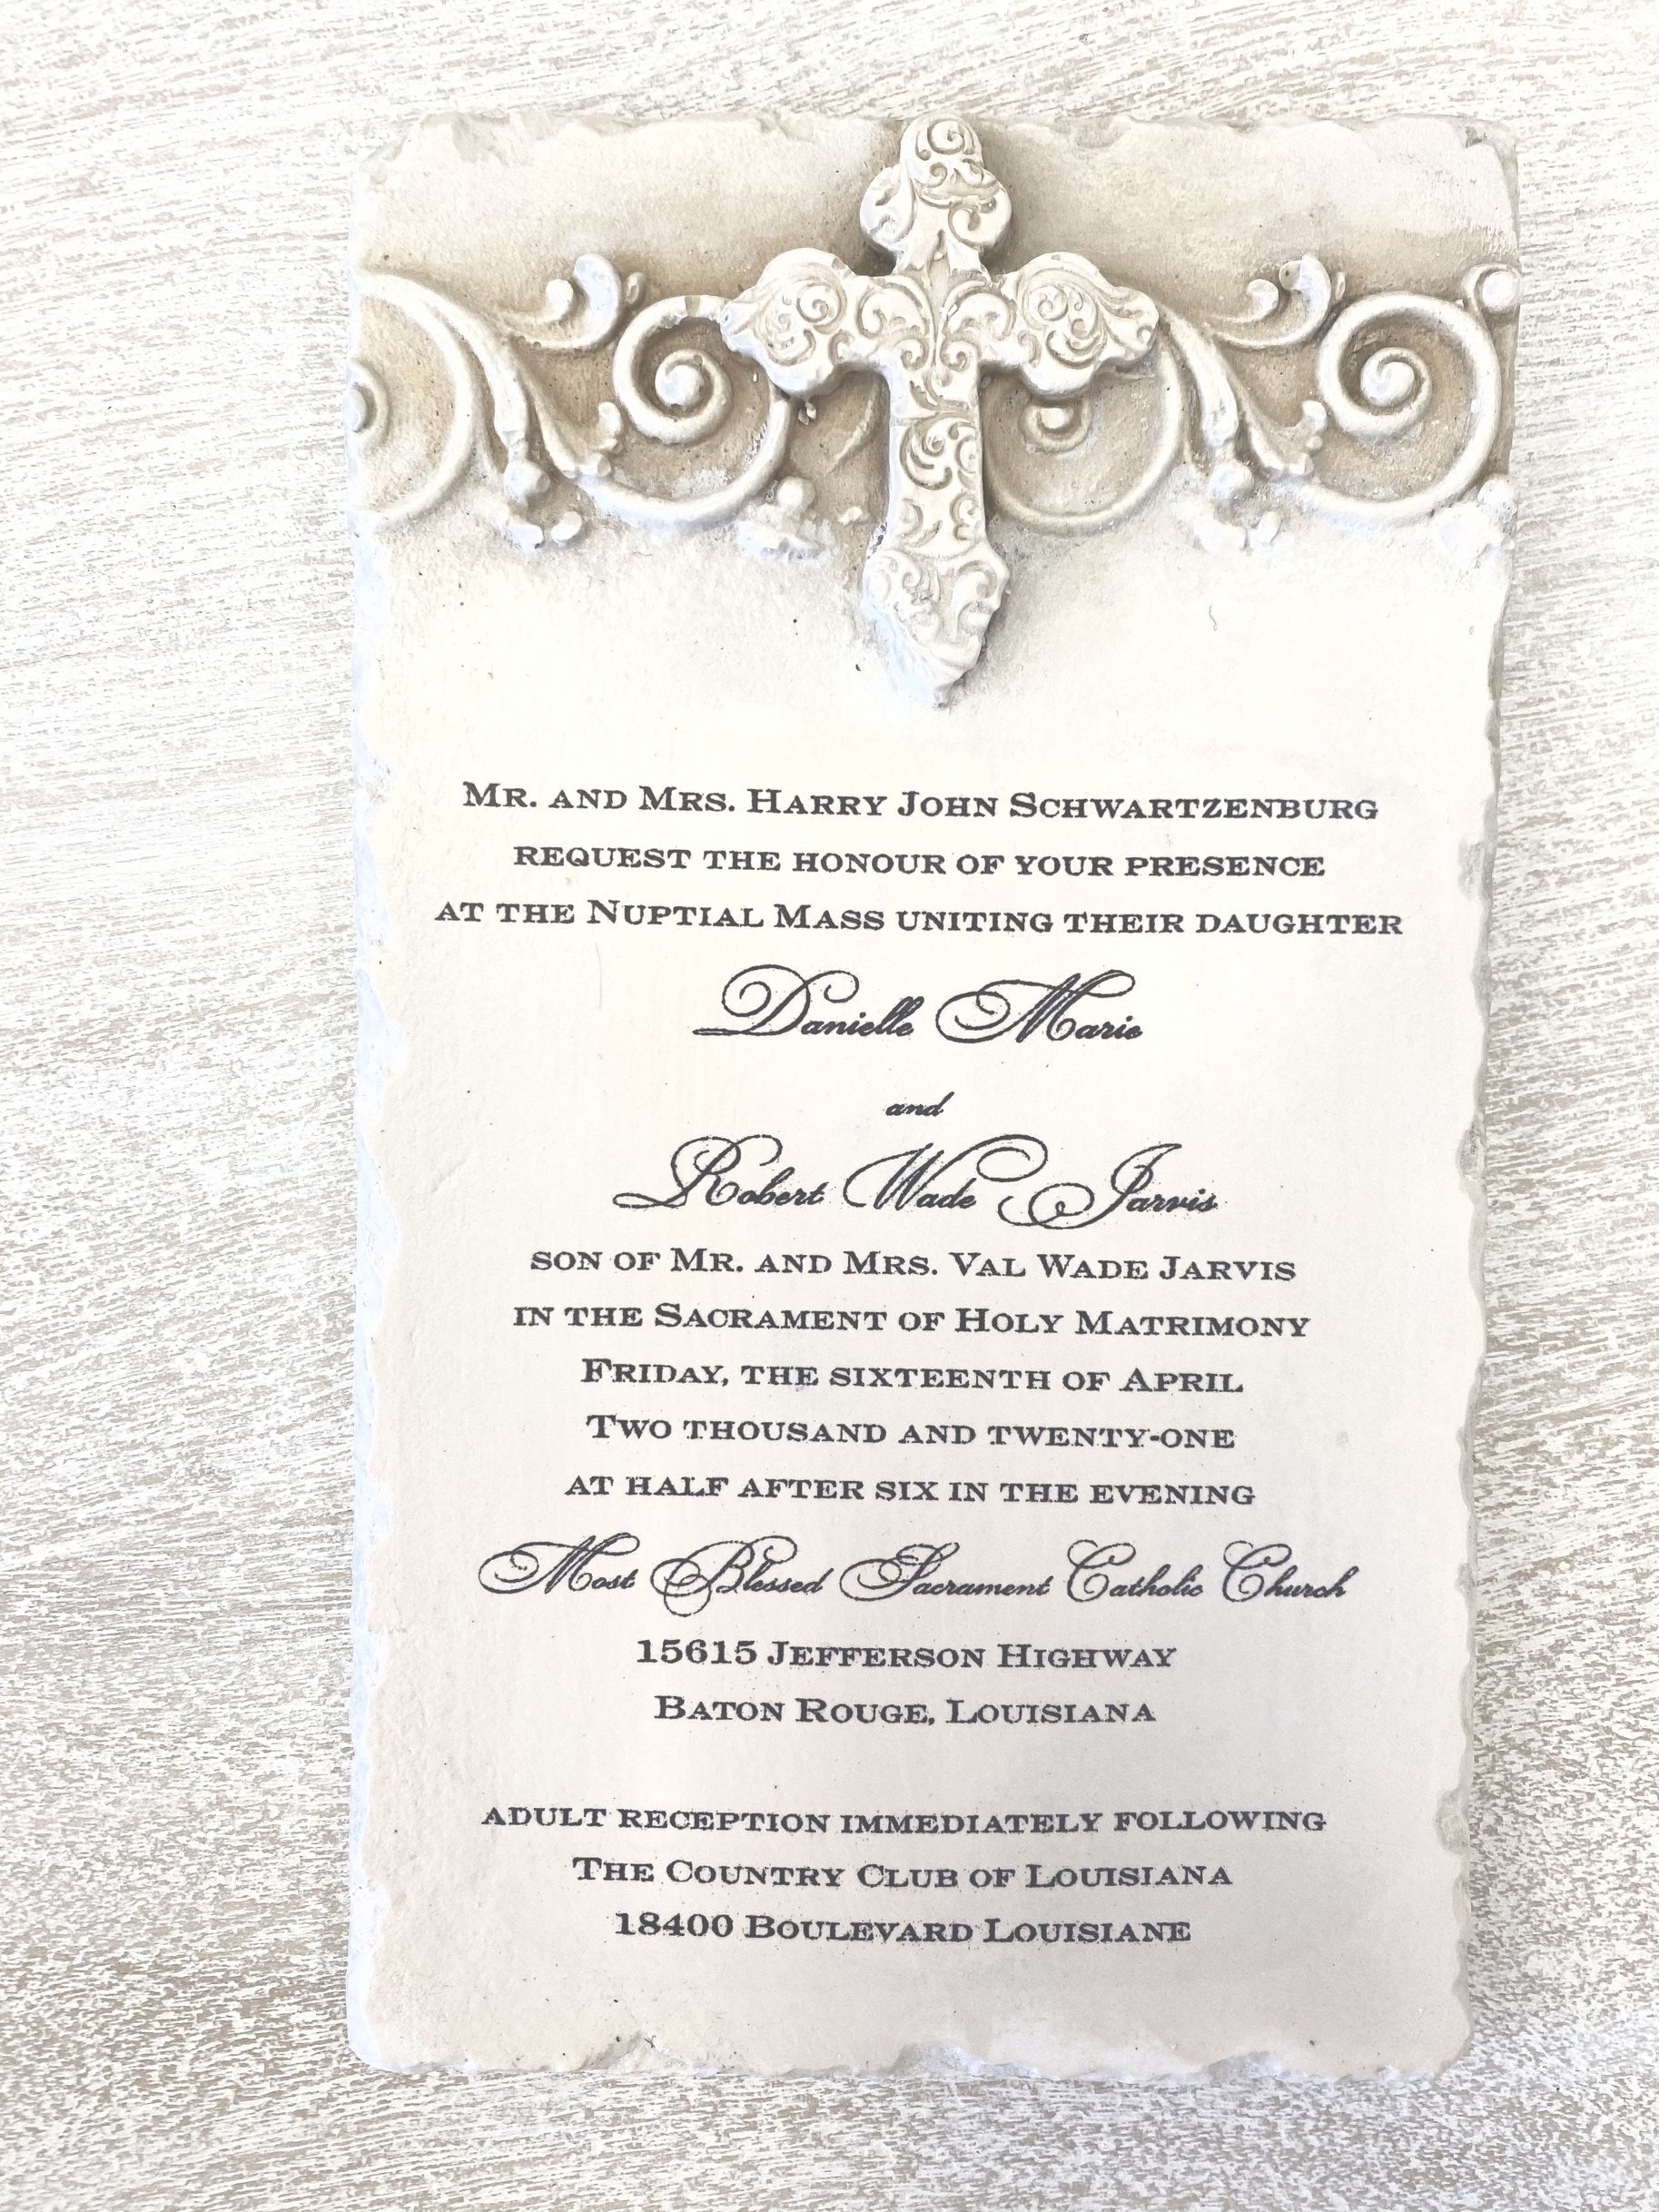 Mr. and Mrs. Harry John Schwartzenburg
request the honour of your presence
at the Nuptial Mass uniting their daughter
Danielle Marie
and
Robert Wade Jarvis
son of Mr. and Mrs. Val Wade Jarvis
in the Sacrament of Holy Matrimony
Friday, the sixteenth of April
Two thousand and twenty-one
at half after six in the evening
Most Blessed Sacrament Catholic Church
15615 Jefferson Highway
Baton Rouge, Louisiana
adult reception immediately following
The Country Club of Louisiana
18400 Boulevard Louisiane